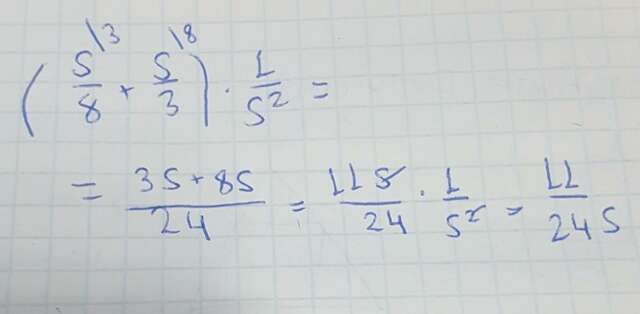 (S/8\3 + S/3\8) · 1/S² =
= 3S+8S/24 = 11S/24 · 1/S² = 11/24S